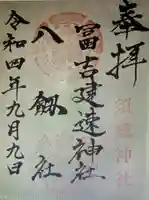 奉拝
冨吉建速神社
八劔社
令和四年九月九日